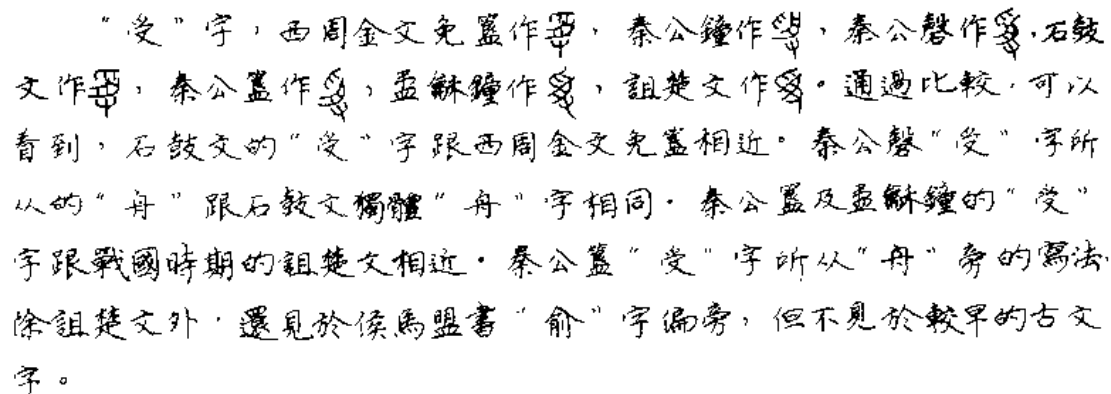 “受”字，西周金文免簋作，秦公鐘作，秦公磬作，石鼓
文作，秦公簋作，盄龢鐘作，詛楚文作。通過比較，可以
看到，石鼓文的“受”字跟西周金文免簋相近。秦公磬“受”字所
从的“舟”跟石鼓文獨體“舟”字相同。秦公簋及盄龢鐘的“受”
字跟戰國時期的詛楚文相近。秦公簋“受”字所从“舟”旁的寫法
除詛楚文外，還見於侯馬盟書“俞”字偏旁，但不見於較早的古文
字。